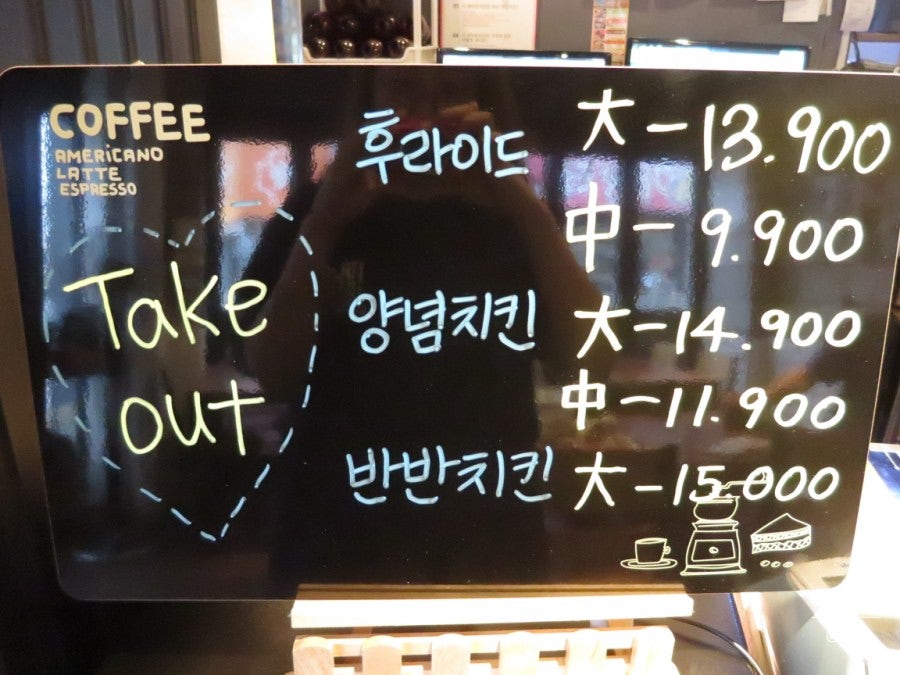 COFFEE
AMERICANO
LATTE
ESPRESSO
Take
out
후라이드 大 - 13.900
中 - 9.900
양념치킨 大 - 14.900
中 - 11.900
반반치킨 大 - 15.000